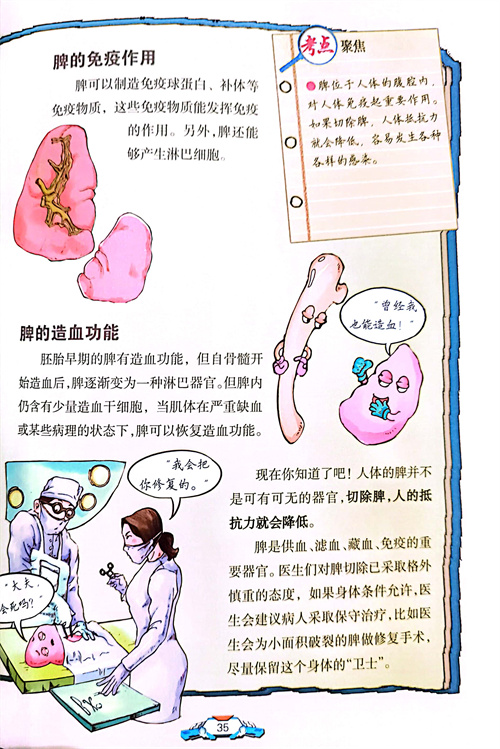 脾的免疫作用
脾可以制造免疫球蛋白、补体等
免疫物质，这些免疫物质能发挥免疫
的作用。另外，脾还能
够产生淋巴细胞。
考点 聚焦
脾位于人体的腹腔内，
对人体免疫起重要作用。
如果切除脾，人体抵抗力
就会降低，容易发生各种
各样的感染。
“曾经我
也能造血！”
脾的造血功能
胚胎早期的脾有造血功能，但自骨髓开
始造血后，脾逐渐变为一种淋巴器官。但脾内
仍含有少量造血干细胞，当肌体在严重缺血
或某些病理的状态下，脾可以恢复造血功能。
“我会把
你修复的。”
“大夫，
会死吗？”
现在你知道了吧！人体的脾并不
是可有可无的器官，切除脾，人的抵
抗力就会降低。
脾是供血、滤血、藏血、免疫的重
要器官。医生们对脾切除已采取格外
慎重的态度，如果身体条件允许，医
生会建议病人采取保守治疗，比如医
生会为小面积破裂的脾做修复手术，
尽量保留这个身体的“卫士”。
35